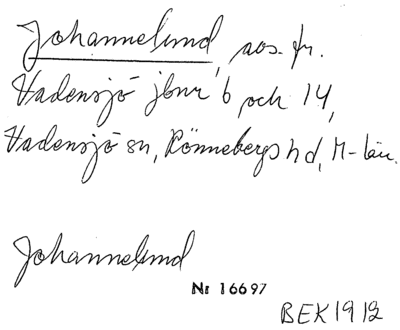 Johannelund, avs. fr.
Vadensjö jbnr 6 och 14,
Vadensjö sn, Rönnebergs hd, M-län.
Johannelund
Nr 16697
BEK 1912